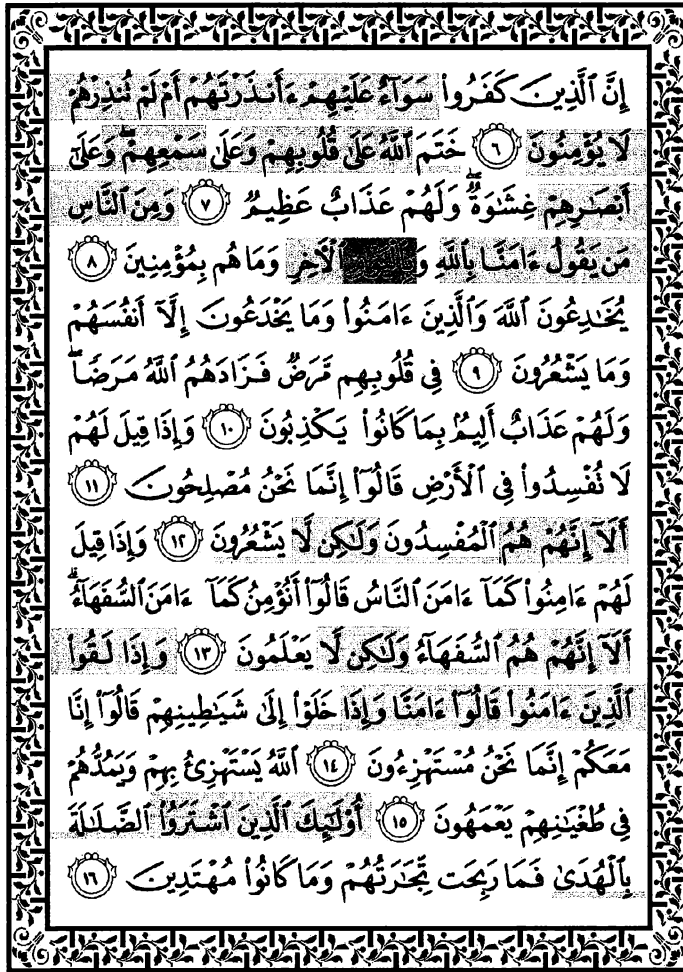 إِنَّ ٱلَّذِينَ كَفَرُوا۟ سَوَآءٌ عَلَيْهِمْ ءَأَنذَرْتَهُمْ أَمْ لَمْ تُنذِرْهُمْ
لَا يُؤْمِنُونَ ٦ خَتَمَ ٱللَّهُ عَلَىٰ قُلُوبِهِمْ وَعَلَىٰ سَمْعِهِمْ ۖ وَعَلَىٰٓ
أَبْصَٰرِهِمْ غِشَٰوَةٌ ۖ وَلَهُمْ عَذَابٌ عَظِيمٌ ٧ وَمِنَ ٱلنَّاسِ
مَن يَقُولُ ءَامَنَّا بِٱللَّهِ ٱلْءَاخِرِ وَمَا هُم بِمُؤْمِنِينَ ٨
يُخَٰدِعُونَ ٱللَّهَ وَٱلَّذِينَ ءَامَنُوا۟ وَمَا يَخْدَعُونَ إِلَّآ أَنفُسَهُمْ
وَمَا يَشْعُرُونَ ٩ فِى قُلُوبِهِم مَّرَضٌ فَزَادَهُمُ ٱللَّهُ مَرَضًا ۖ
وَلَهُمْ عَذَابٌ أَلِيمٌۢ بِمَا كَانُوا۟ يَكْذِبُونَ ١٠ وَإِذَا قِيلَ لَهُمْ
لَا تُفْسِدُوا۟ فِى ٱلْأَرْضِ قَالُوٓا۟ إِنَّمَا نَحْنُ مُصْلِحُونَ ١١
أَلَآ إِنَّهُمْ هُمُ ٱلْمُفْسِدُونَ وَلَٰكِن لَّا يَشْعُرُونَ ١٢ وَإِذَا قِيلَ
لَهُمْ ءَامِنُوا۟ كَمَآ ءَامَنَ ٱلنَّاسُ قَالُوٓا۟ أَنُؤْمِنُ كَمَآ ءَامَنَ ٱلسُّفَهَآءُ ۗ
أَلَآ إِنَّهُمْ هُمُ ٱلسُّفَهَآءُ وَلَٰكِن لَّا يَعْلَمُونَ ١٣ وَإِذَا لَقُوا۟
ٱلَّذِينَ ءَامَنُوا۟ قَالُوٓا۟ ءَامَنَّا وَإِذَا خَلَوْا۟ إِلَىٰ شَيَٰطِينِهِمْ قَالُوٓا۟ إِنَّا
مَعَكُمْ إِنَّمَا نَحْنُ مُسْتَهْزِءُونَ ١٤ ٱللَّهُ يَسْتَهْزِئُ بِهِمْ وَيَمُدُّهُمْ
فِى طُغْيَٰنِهِمْ يَعْمَهُونَ ١٥ أُو۟لَٰٓئِكَ ٱلَّذِينَ ٱشْتَرَوُا۟ ٱلضَّلَٰلَةَ
بِٱلْهُدَىٰ فَمَا رَبِحَت تِّجَٰرَتُهُمْ وَمَا كَانُوا۟ مُهْتَدِينَ ١٦